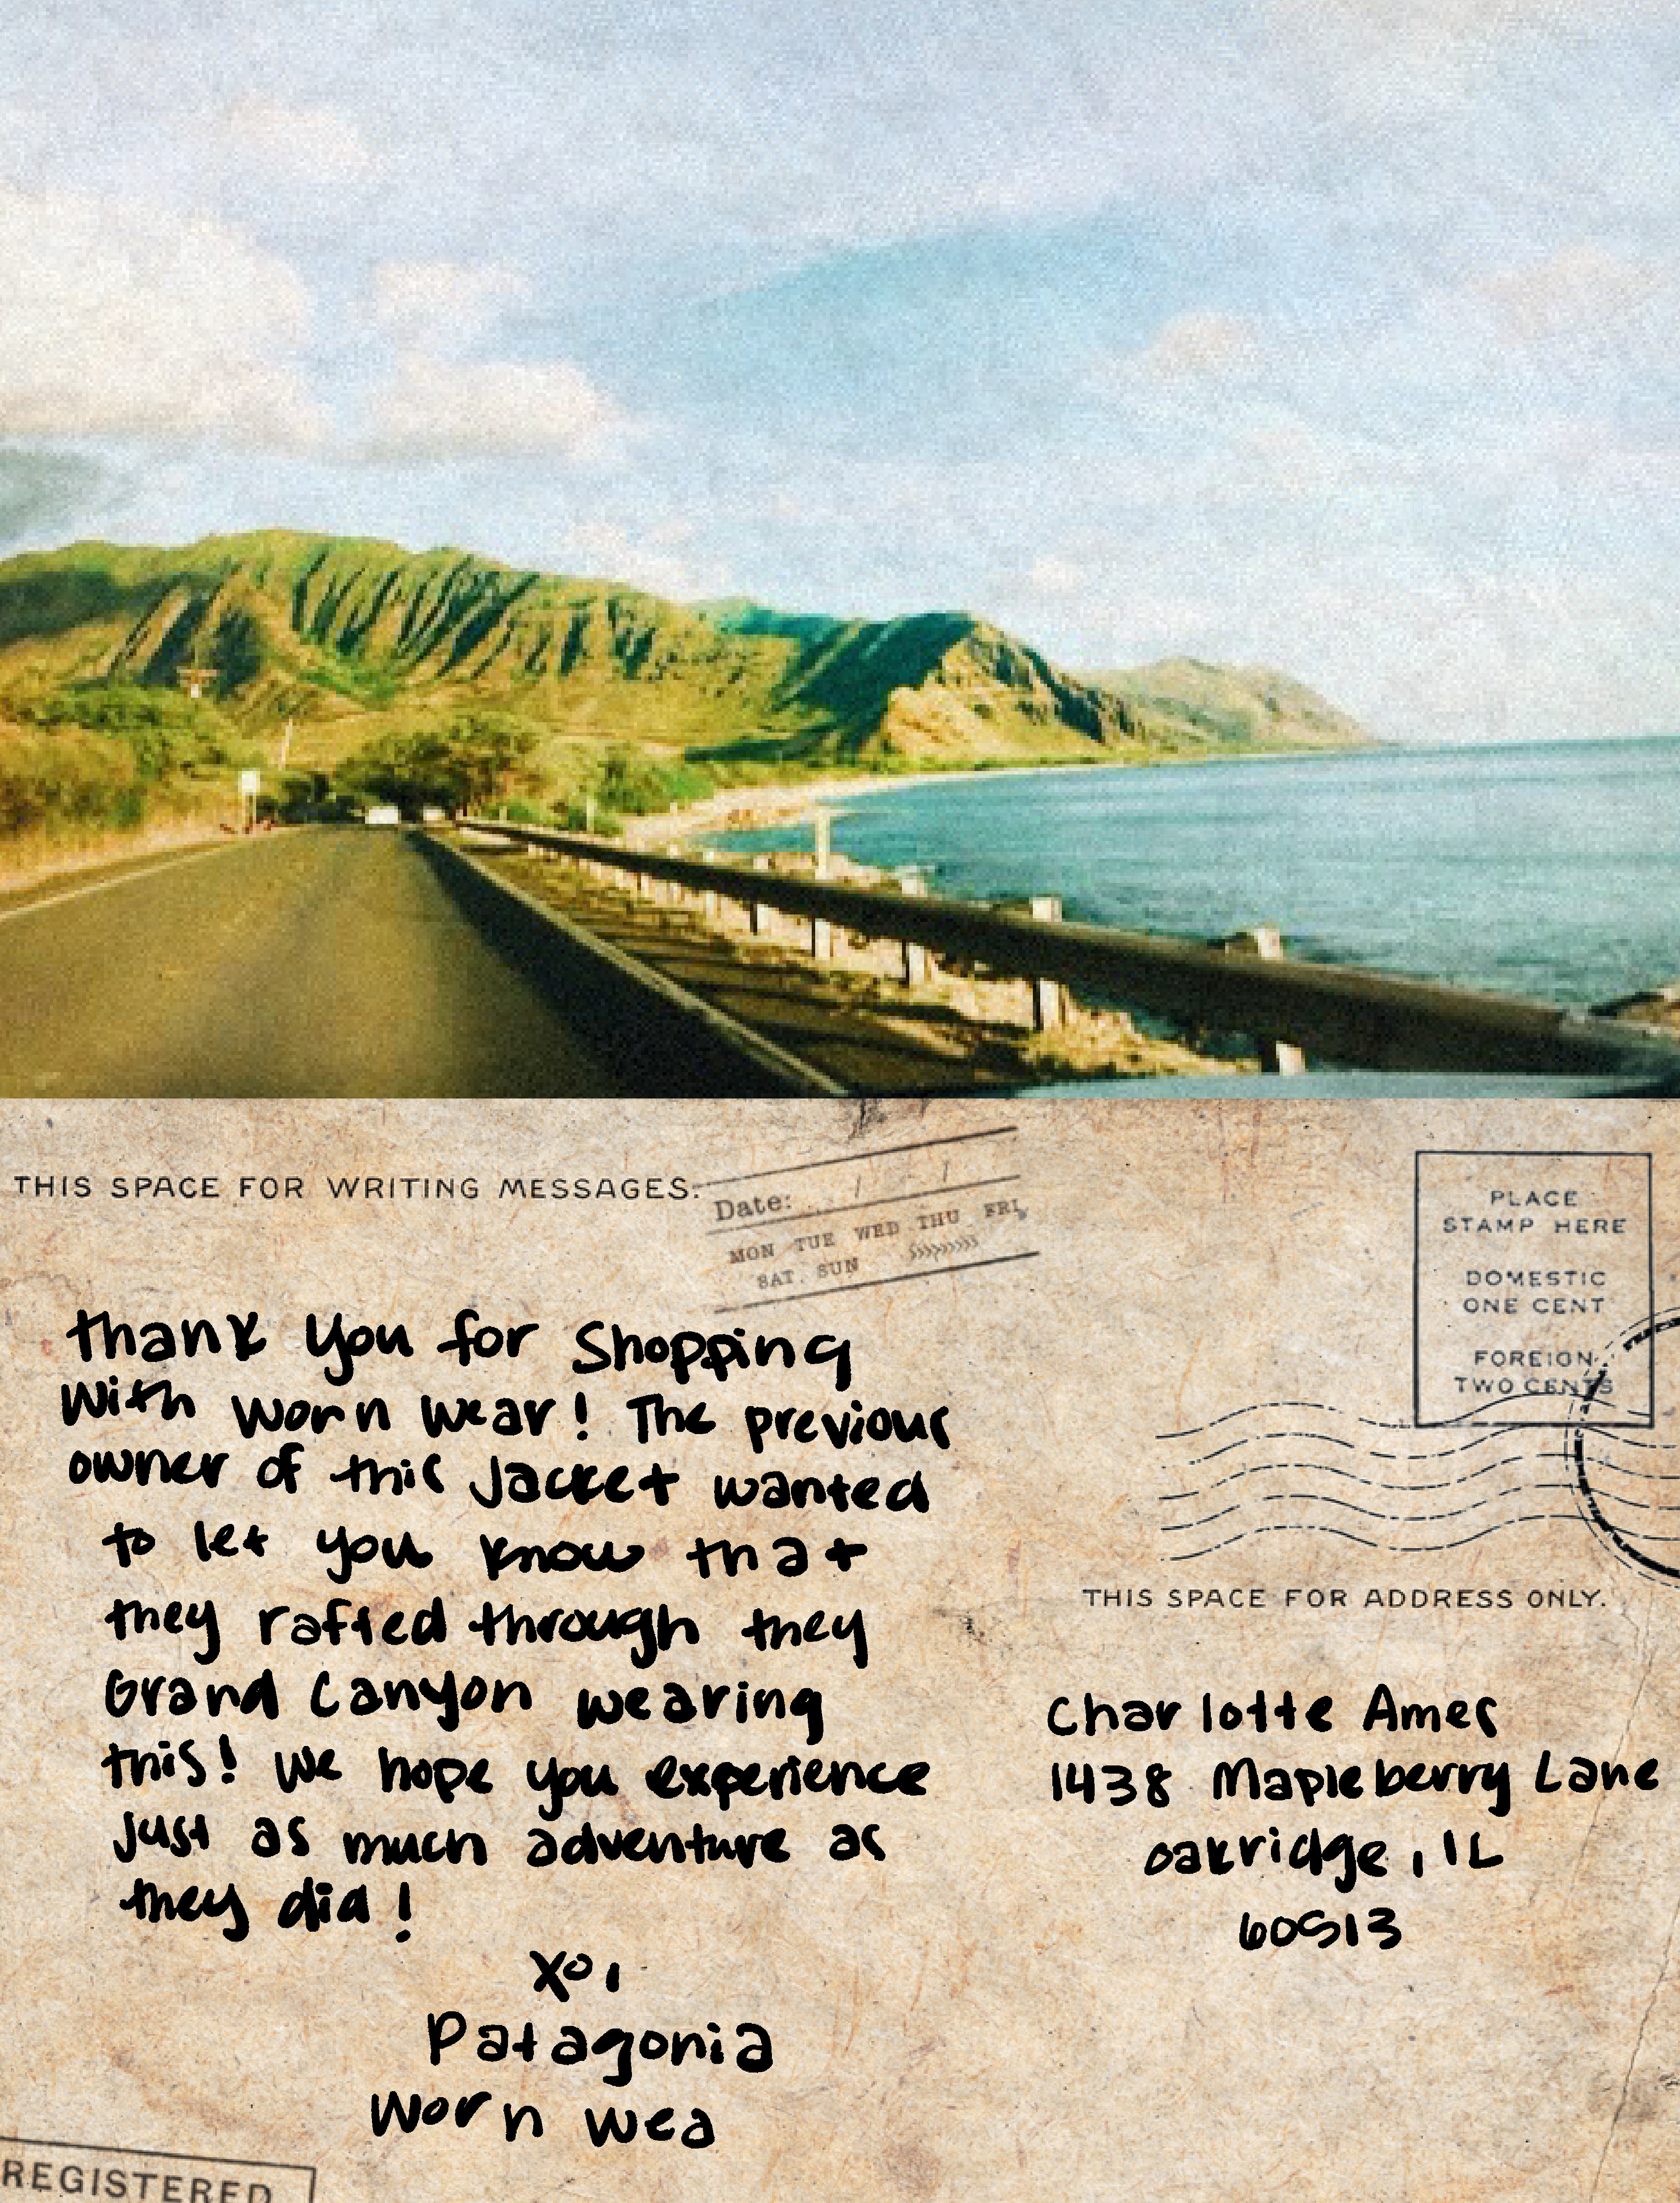 THIS SPACE FOR WRITING MESSAGES.
Date: / /
MON TUE WED THU FRI
SAT. SUN
thank you for shopping
with worn wear! The previous
owner of this jacket wanted
to let you know that
they rafted through they
Grand Canyon wearing
this! We hope you experience
just as much adventure as
they did!
XO,
Patagonia
Worn Wea
REGISTERED
PLACE
STAMP HERE
DOMESTIC
ONE CENT
FOREIGN
TWO CENTS
THIS SPACE FOR ADDRESS ONLY.
Charlotte Ames
1438 Mapleberry Lane
Oakridge, IL
60513